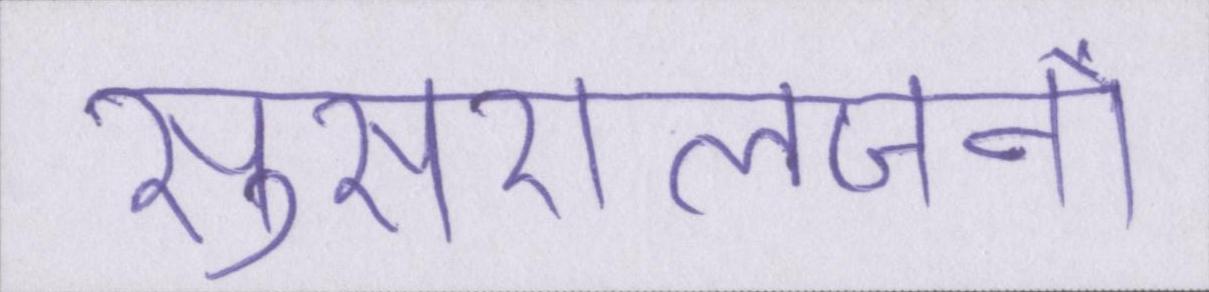 सुसरालजनों